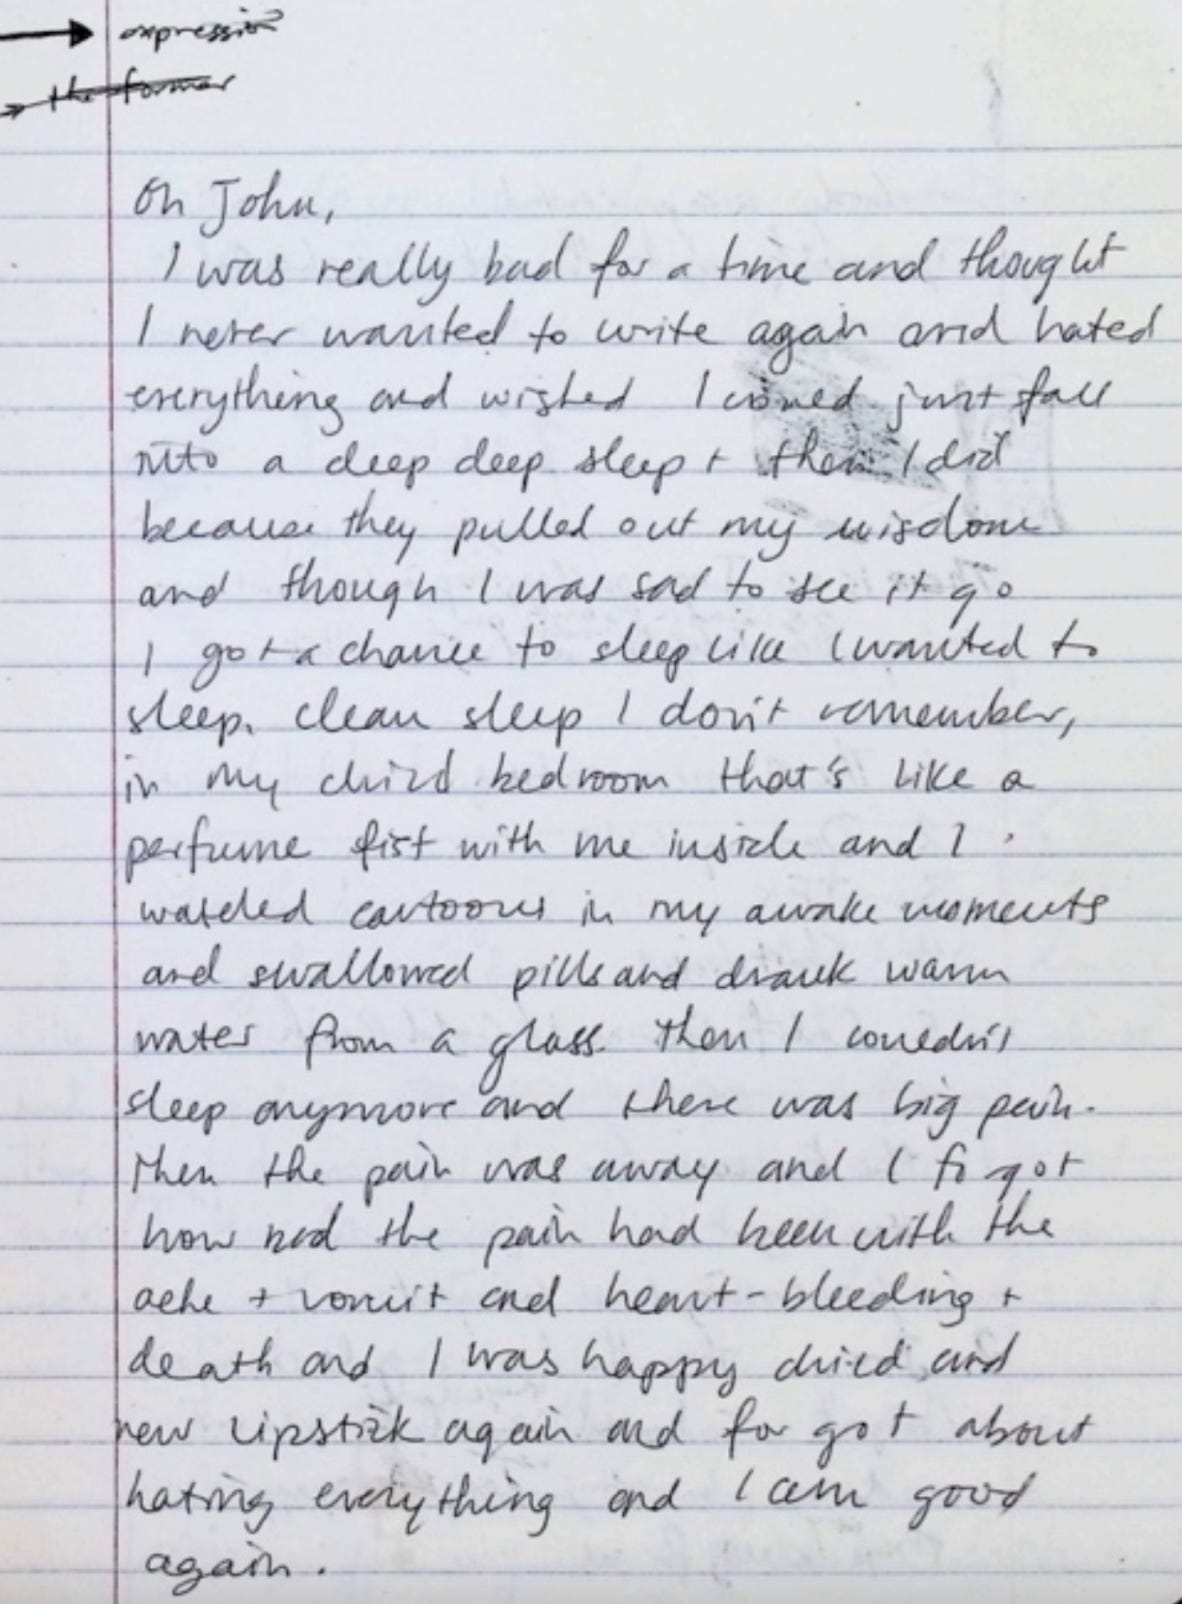 expression
the former
Oh John,
I was really bad for a time and thought
I never wanted to write again and hated
everything and wished I could just fall
into a deep deep sleep + then I did
because they pulled out my wisdom
and though I was sad to see it go
I got a chance to sleep like I wanted to
sleep. clean sleep I don't remember,
in my child bedroom that's like a
perfume fist with me inside and I
watched cartoons in my awake moments
and swallowed pills and drank warm
water from a glass. then I couldn't
sleep anymore and there was big pain.
Then the pain was away and I forgot
how bad the pain had been with the
ache + vomit and heart-bleeding +
death and I was happy child and
new lipstick again and forgot about
hating everything and I am good
again.